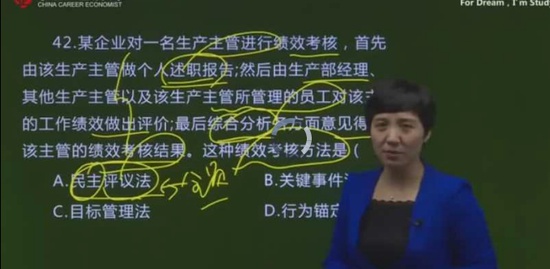 CHINA CAREER ECONOMIST
For Dream , I'm Stud
42.某企业对一名生产主管进行绩效考核，首先
由该生产主管做个人述职报告;然后由生产部经理、
其他生产主管以及该生产主管所管理的员工对该
的工作绩效做出评价;最后综合分析各方面意见得
该主管的绩效考核结果。这种绩效考核方法是（
A.民主评议法
B.关键事件
C.目标管理法
D.行为锚定